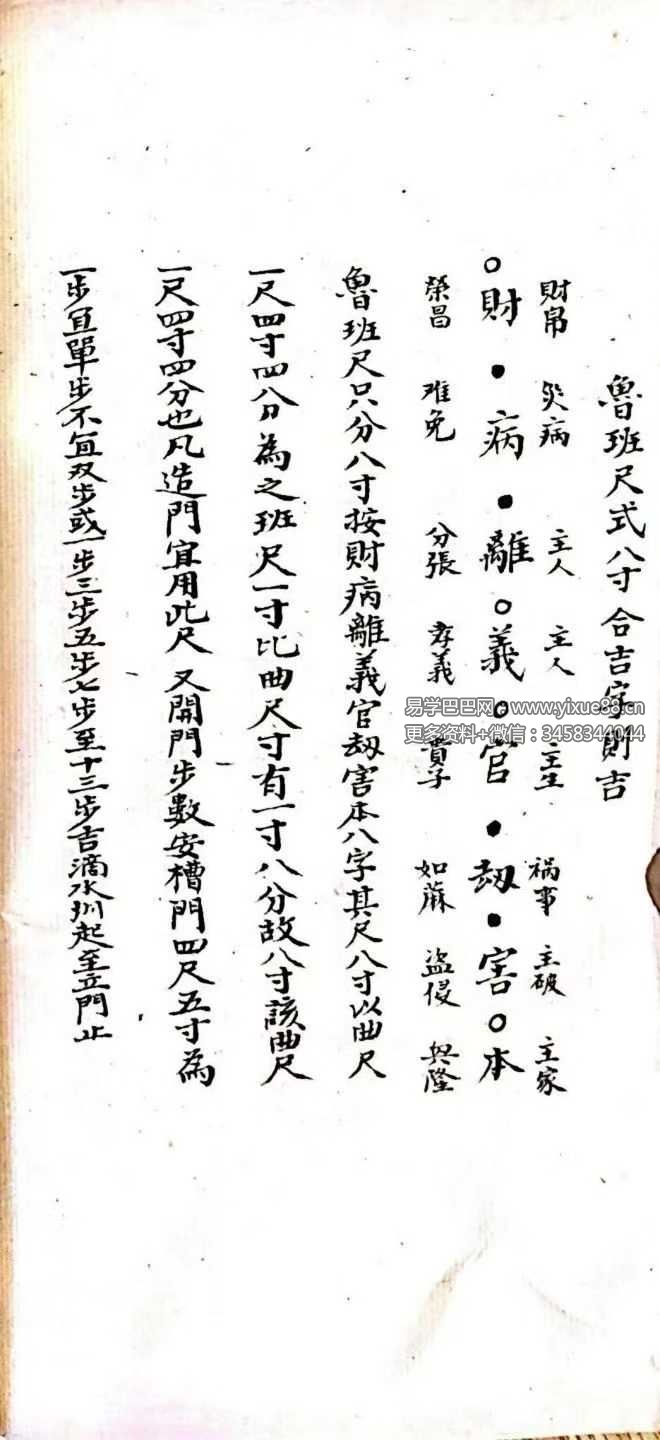 魯班尺式八寸合吉字則吉
財帛 災病 主人 主人 主生 祸事 主破 主家
○財●病●離○義○官●刼●害○本
榮昌 难免 分張 孝義 貴子 如蔴 盗侵 興隆
魯班尺只分八寸按財病離義官刼害本八字其尺八寸以曲尺
一尺四寸四分為之班尺一寸比曲尺寸有一寸八分故八寸該曲尺
一尺四寸四分也凡造門宜用此尺 又開門步數安槽門四尺五寸為
一步宜單步不宜双步或一步三步五步七步至十三步吉滴水圳起至立門止
易学巴巴网：www.yixue88.cn
更多资料+微信：3458344044